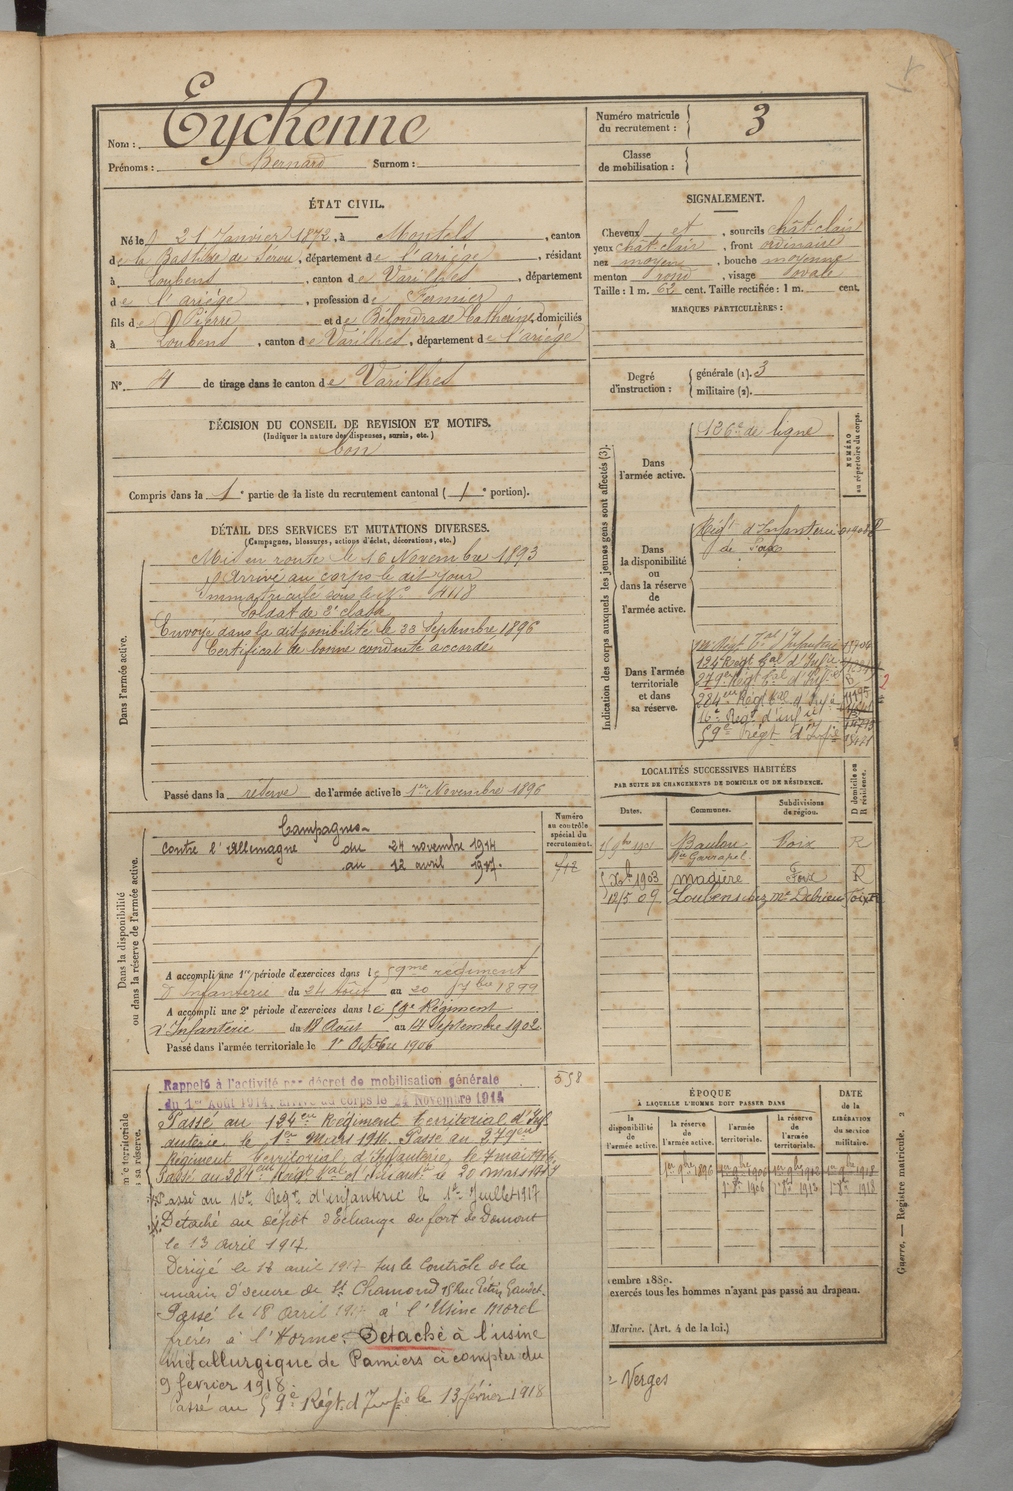 Nom : Eychenne
Prénoms : Bernard Surnom :
Numéro matricule
du recrutement : 3
Classe
de mobilisation :
ÉTAT CIVIL.
Né le 21 Janvier 1872, à Montels, canton
de la Bastide de Sérou, département de l'ariège, résidant
à Loubens, canton de Varilhes, département
de l'ariège, profession de Fermier
fils de Pierre et de Bélondrade Catherine, domiciliés
à Loubens, canton de Varilhes, département de l'ariège
N° 4 de tirage dans le canton de Varilhes
DÉCISION DU CONSEIL DE REVISION ET MOTIFS.
(Indiquer la nature des dispenses, sursis, etc.)
bon
Compris dans la 1e partie de la liste du recrutement cantonal ( 1e portion).
DÉTAIL DES SERVICES ET MUTATIONS DIVERSES.
(Campagnes, blessures, actions d'éclat, décorations, etc.)
Dans l'armée active.
Mis en route le 16 Novembre 1893
Arrivé au corps le dit jour
Immatriculé sous le n° 4118
Soldat de 2e classe
Envoyé dans la disponibilité le 23 Septembre 1896
Certificat de bonne conduite accordé
Passé dans la réserve de l'armée active le 1er Novembre 1896
Dans la disponibilité
ou dans la réserve de l'armée active.
Numéro
au contrôle
spécial du
recrutement.
712
Campagnes
Contre l'Allemagne du 24 novembre 1914
au 12 avril 1917.
A accompli une 1re période d'exercices dans le 59me régiment
d'Infanterie du 24 Août au 20 7bre 1899
A accompli une 2e période d'exercices dans le 59e Régiment
d'Infanterie du 18 Août au 14 Septembre 1902
Passé dans l'armée territoriale le 1er Octobre 1906
558
Rappelé à l'activité par décret de mobilisation générale
du 1er Août 1914, arrivé au corps le 24 Novembre 1914
Passé au 134eu Régiment Territorial d'Inf
anterie, le 1er Mars 1916. Passé au 279eu
Régiment territorial d'Infanterie, le 7 mai 1916
Passé au 284eu Régt tal d'Infantie le 20 Mars 1917
Passé au 16e Régt d'infanterie le 1er Juillet 1917
Détaché au dépôt d'Echange du fort de Domont
le 13 avril 1917.
Dirigé le 18 avril 1917 sur le Contrôle de la
main d'œuvre de St Chamond 15 Rue Pétin Gaudet.
Passé le 18 avril 1917 à l'Usine Morel
frères à l'Horme. Détaché à l'usine
métallurgique de Pamiers à compter du
9 février 1918.
Passé au 59e Régt d'Infie le 13 février 1918
SIGNALEMENT.
Cheveux et, sourcils chât-clair
yeux chât-clair, front ordinaire
nez moyen, bouche moyenne
menton rond, visage ovale
Taille : 1 m. 62 cent. Taille rectifiée : 1 m. cent.
MARQUES PARTICULIÈRES :
Degré
d'instruction :
générale (1). 3
militaire (2).
Indication des corps auxquels les jeunes gens sont affectés (3).
NUMÉRO
au répertoire du corps.
Dans
l'armée active.
126e de ligne
Dans
la disponibilité
ou
dans la réserve
de
l'armée active.
Régt d'Infanterie
de Foix
Dans l'armée
territoriale
et dans
sa réserve.
134 Régt tal d'Infie
279eu Régt tal d'Infie
284eu Régt tal d'Infie
16e Régt d'infie
59e régt d'Infie
LOCALITÉS SUCCESSIVES HABITÉES
PAR SUITE DE CHANGEMENTS DE DOMICILE OU DE RÉSIDENCE.
D domicile ou
R résidence.
Dates. Communes. Subdivisions
de région.
Baulou Foix R
5 Xbre 1903 Madière Foix R
12/5 09 Loubens chez Mr Foix R
ÉPOQUE
À LAQUELLE L'HOMME DOIT PASSER DANS
DATE
de la
LIBÉRATION
du service
militaire.
la
disponibilité
de
l'armée active.
la réserve
de
l'armée active.
l'armée
territoriale.
la réserve
de
l'armée
territoriale.
1er 9bre 1896 1er 9bre 1906 1er 9bre 1912 1er 9bre 1918
1er 8bre 1906 1er 8bre 1912 1er 8bre 1918
embre 1889.
exercés tous les hommes n'ayant pas passé au drapeau.
Marine. (Art. 4 de la loi.)
Verges
Guerre. — Registre matricule. 2